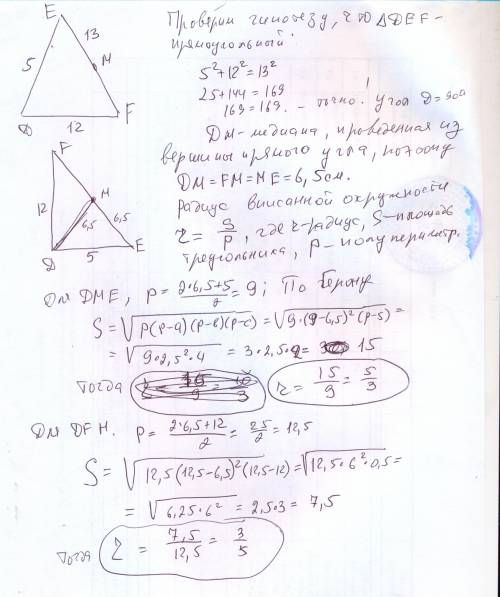 E
13
Проверим гипотезу, что ΔDEF -
прямоугольный:
5
M
5²+12²=13²
25+144=169
169=169. - точно! угол D=90°
D
12
F
DM-медиана, проведенная из
вершины прямого угла, поэтому
DM=FM=ME=6,5см.
Радиус вписанной окружности
r = S/P, где r-радиус, S-площадь
треугольника, P-полупериметр.
F
12
M
6,5
6,5
D
5
E
Для DME, P = (2·6,5+5)/2 = 9; По Герону
S = √(P(P-a)(P-b)(P-c)) = √(9·(9-6,5)²(P-5)) =
= √(9·2,5²·4) = 3·2,5·2 = 15
Тогда r = 15/9 = 5/3
Для DFH. P = (2·6,5+12)/2 = 25/2 = 12,5
S = √(12,5(12,5-6,5)²(12,5-12)) = √(12,5·6²·0,5) =
= √(6,25·6²) = 2,5·3 = 7,5
Тогда r = 7,5/12,5 = 3/5